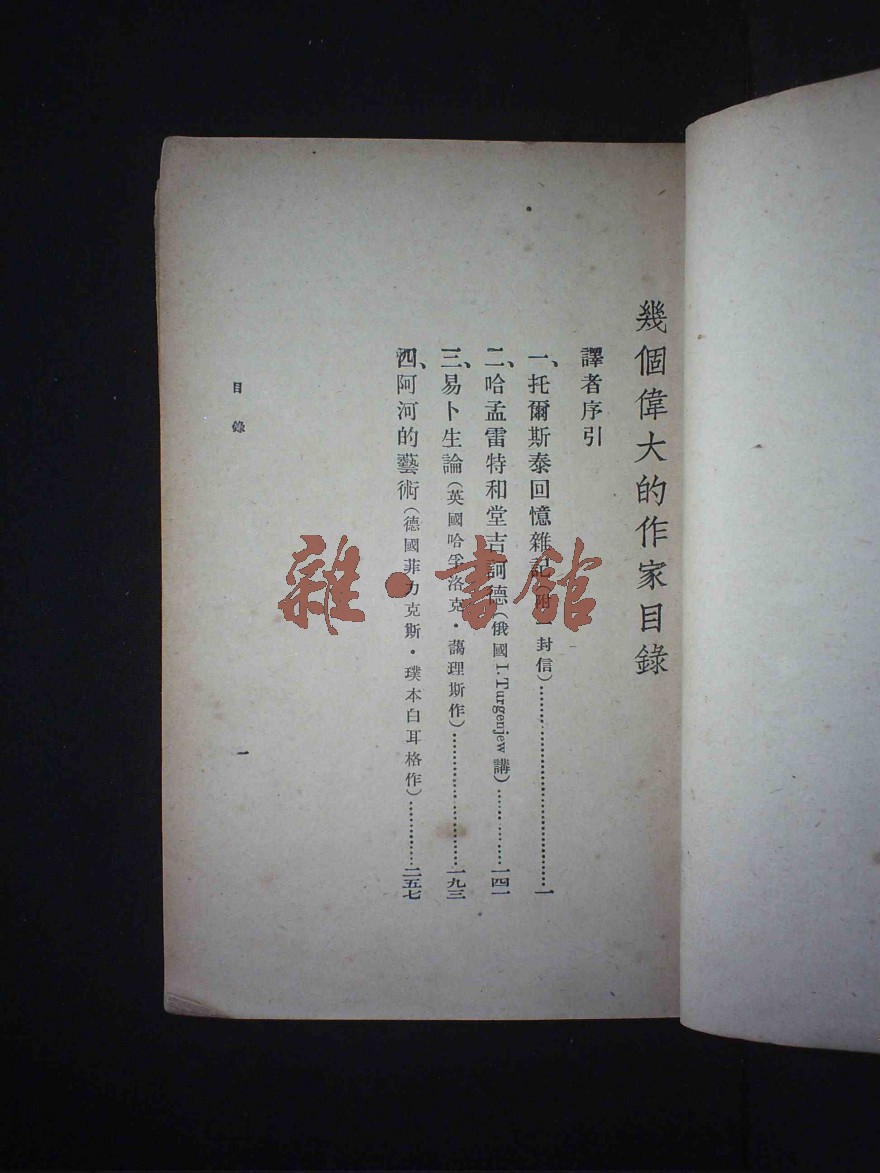 幾個偉大的作家目錄
譯者序引
一、托爾斯泰回憶雜記（附一封信）……一
二、哈孟雷特和堂吉訶德（俄國I. Turgenjew講）……一四一
三、易卜生論（英國哈孚洛克·藹理斯作）……一九三
四、阿河的藝術（德國菲力克斯·璞本白耳格作）……二五七
目錄
一
雜·書館